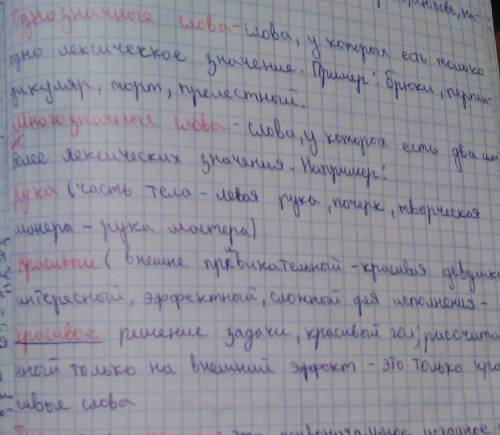 Однозначные слова - слова, у которых есть только
одно лексическое значение. Пример: брюки, перпен-
дикуляр, торт, прелестный.
Многозначные слова - слова, у которых есть два или
более лексических значения. Например:
рука (часть тела - левая рука, почерк, творческая
манера - рука мастера)
красивый (внешне привлекательный - красивая девушка
интересный, эффектный, сложный для исполнения -
красивое решение задачи, красивый гол; рассчита
нный только на внешний эффект - это только кра
сивые слова